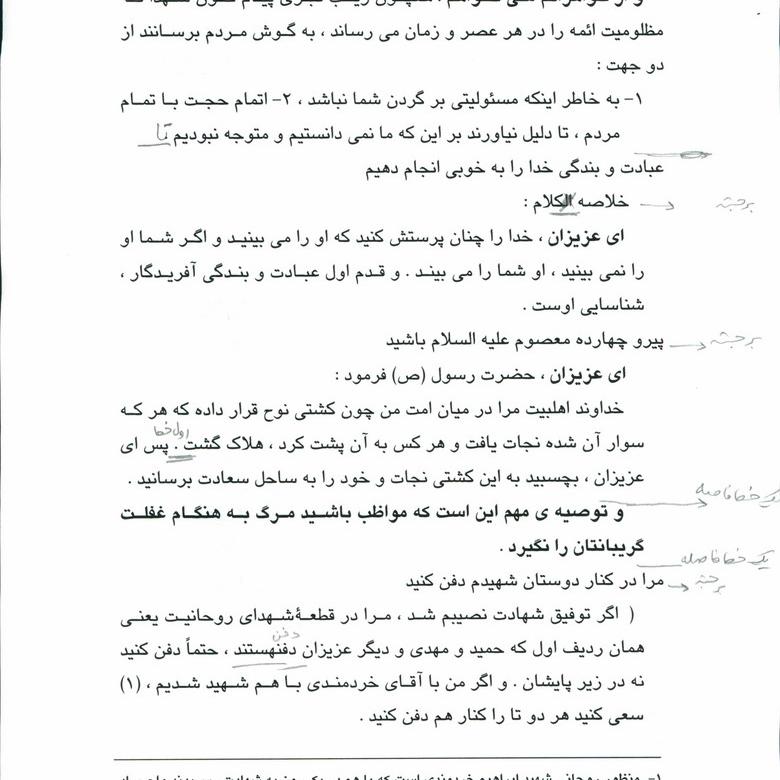 مظلومیت ائمه را در هر عصر و زمان می رساند ، به گوش مردم برسانند از
دو جهت :
۱- به خاطر اینکه مسئولیتی بر گردن شما نباشد ، ۲- اتمام حجت با تمام
مردم ، تا دلیل نیاورند بر این که ما نمی دانستیم و متوجه نبودیم تا
عبادت و بندگی خدا را به خوبی انجام دهیم
خلاصه الکلام : برجسته
ای عزیزان ، خدا را چنان پرستش کنید که او را می بینید و اگر شما او
را نمی بینید ، او شما را می بیند . و قدم اول عبادت و بندگی آفریدگار ،
شناسایی اوست .
پیرو چهارده معصوم علیه السلام باشید برجسته
ای عزیزان ، حضرت رسول (ص) فرمود :
خداوند اهلبیت مرا در میان امت من چون کشتی نوح قرار داده که هر که
سوار آن شده نجات یافت و هر کس به آن پشت کرد ، هلاک گشت . پس ای
اول خط
عزیزان ، بچسبید به این کشتی نجات و خود را به ساحل سعادت برسانید .
یک خط فاصله
و توصیه ی مهم این است که مواظب باشید مرگ به هنگام غفلت
گریبانتان را نگیرد .
یک خط فاصله
مرا در کنار دوستان شهیدم دفن کنید برجسته
( اگر توفیق شهادت نصیبم شد ، مرا در قطعهٔ شهدای روحانیت یعنی
دفن
همان ردیف اول که حمید و مهدی و دیگر عزیزان دفنهستند ، حتماً دفن کنید
نه در زیر پایشان . و اگر من با آقای خردمندی با هم شهید شدیم ، (۱)
سعی کنید هر دو تا را کنار هم دفن کنید .